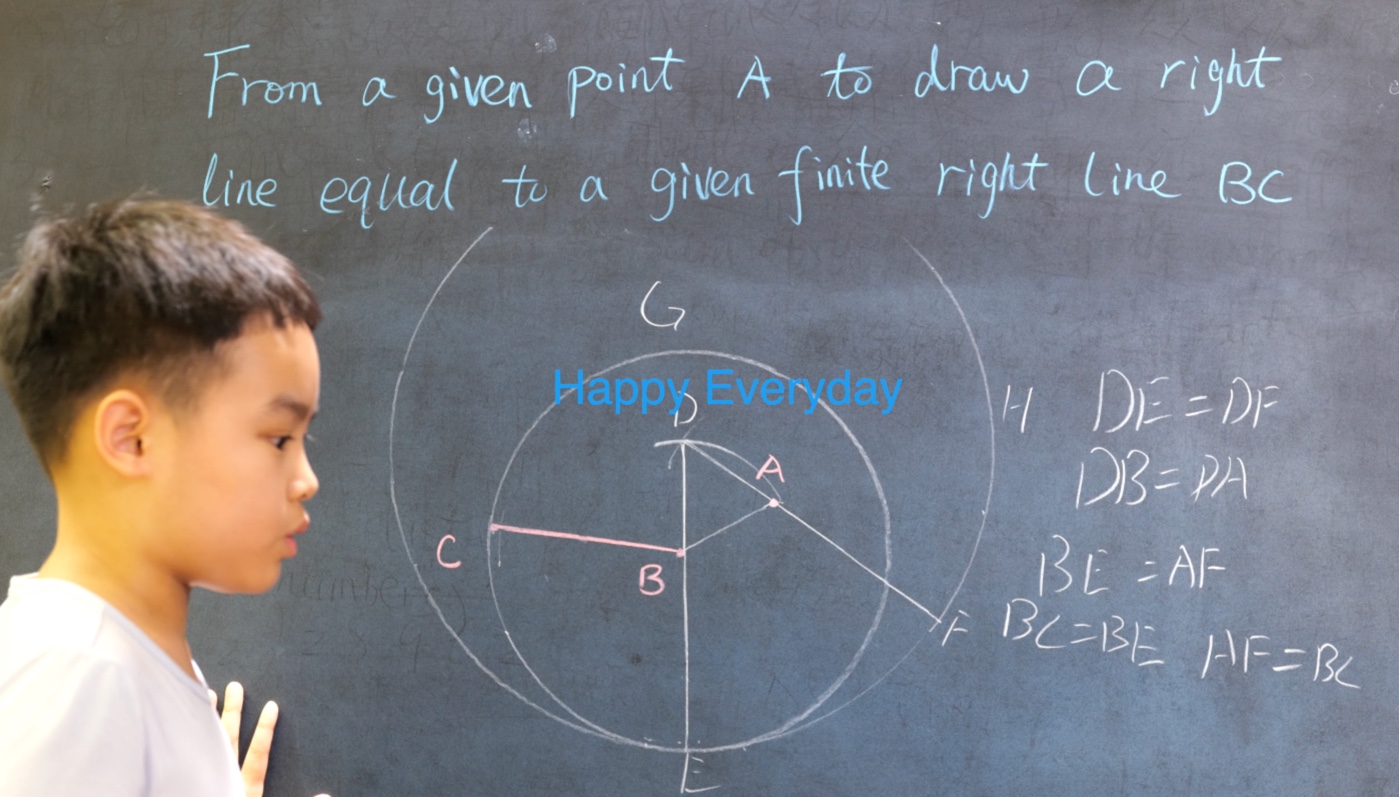 From a given point A to draw a right
line equal to a given finite right line BC
G
Happy Everyday
D
H DE = DF
A
DB = DA
C
B
BE = AF
F
BC = BE AF = BC
E